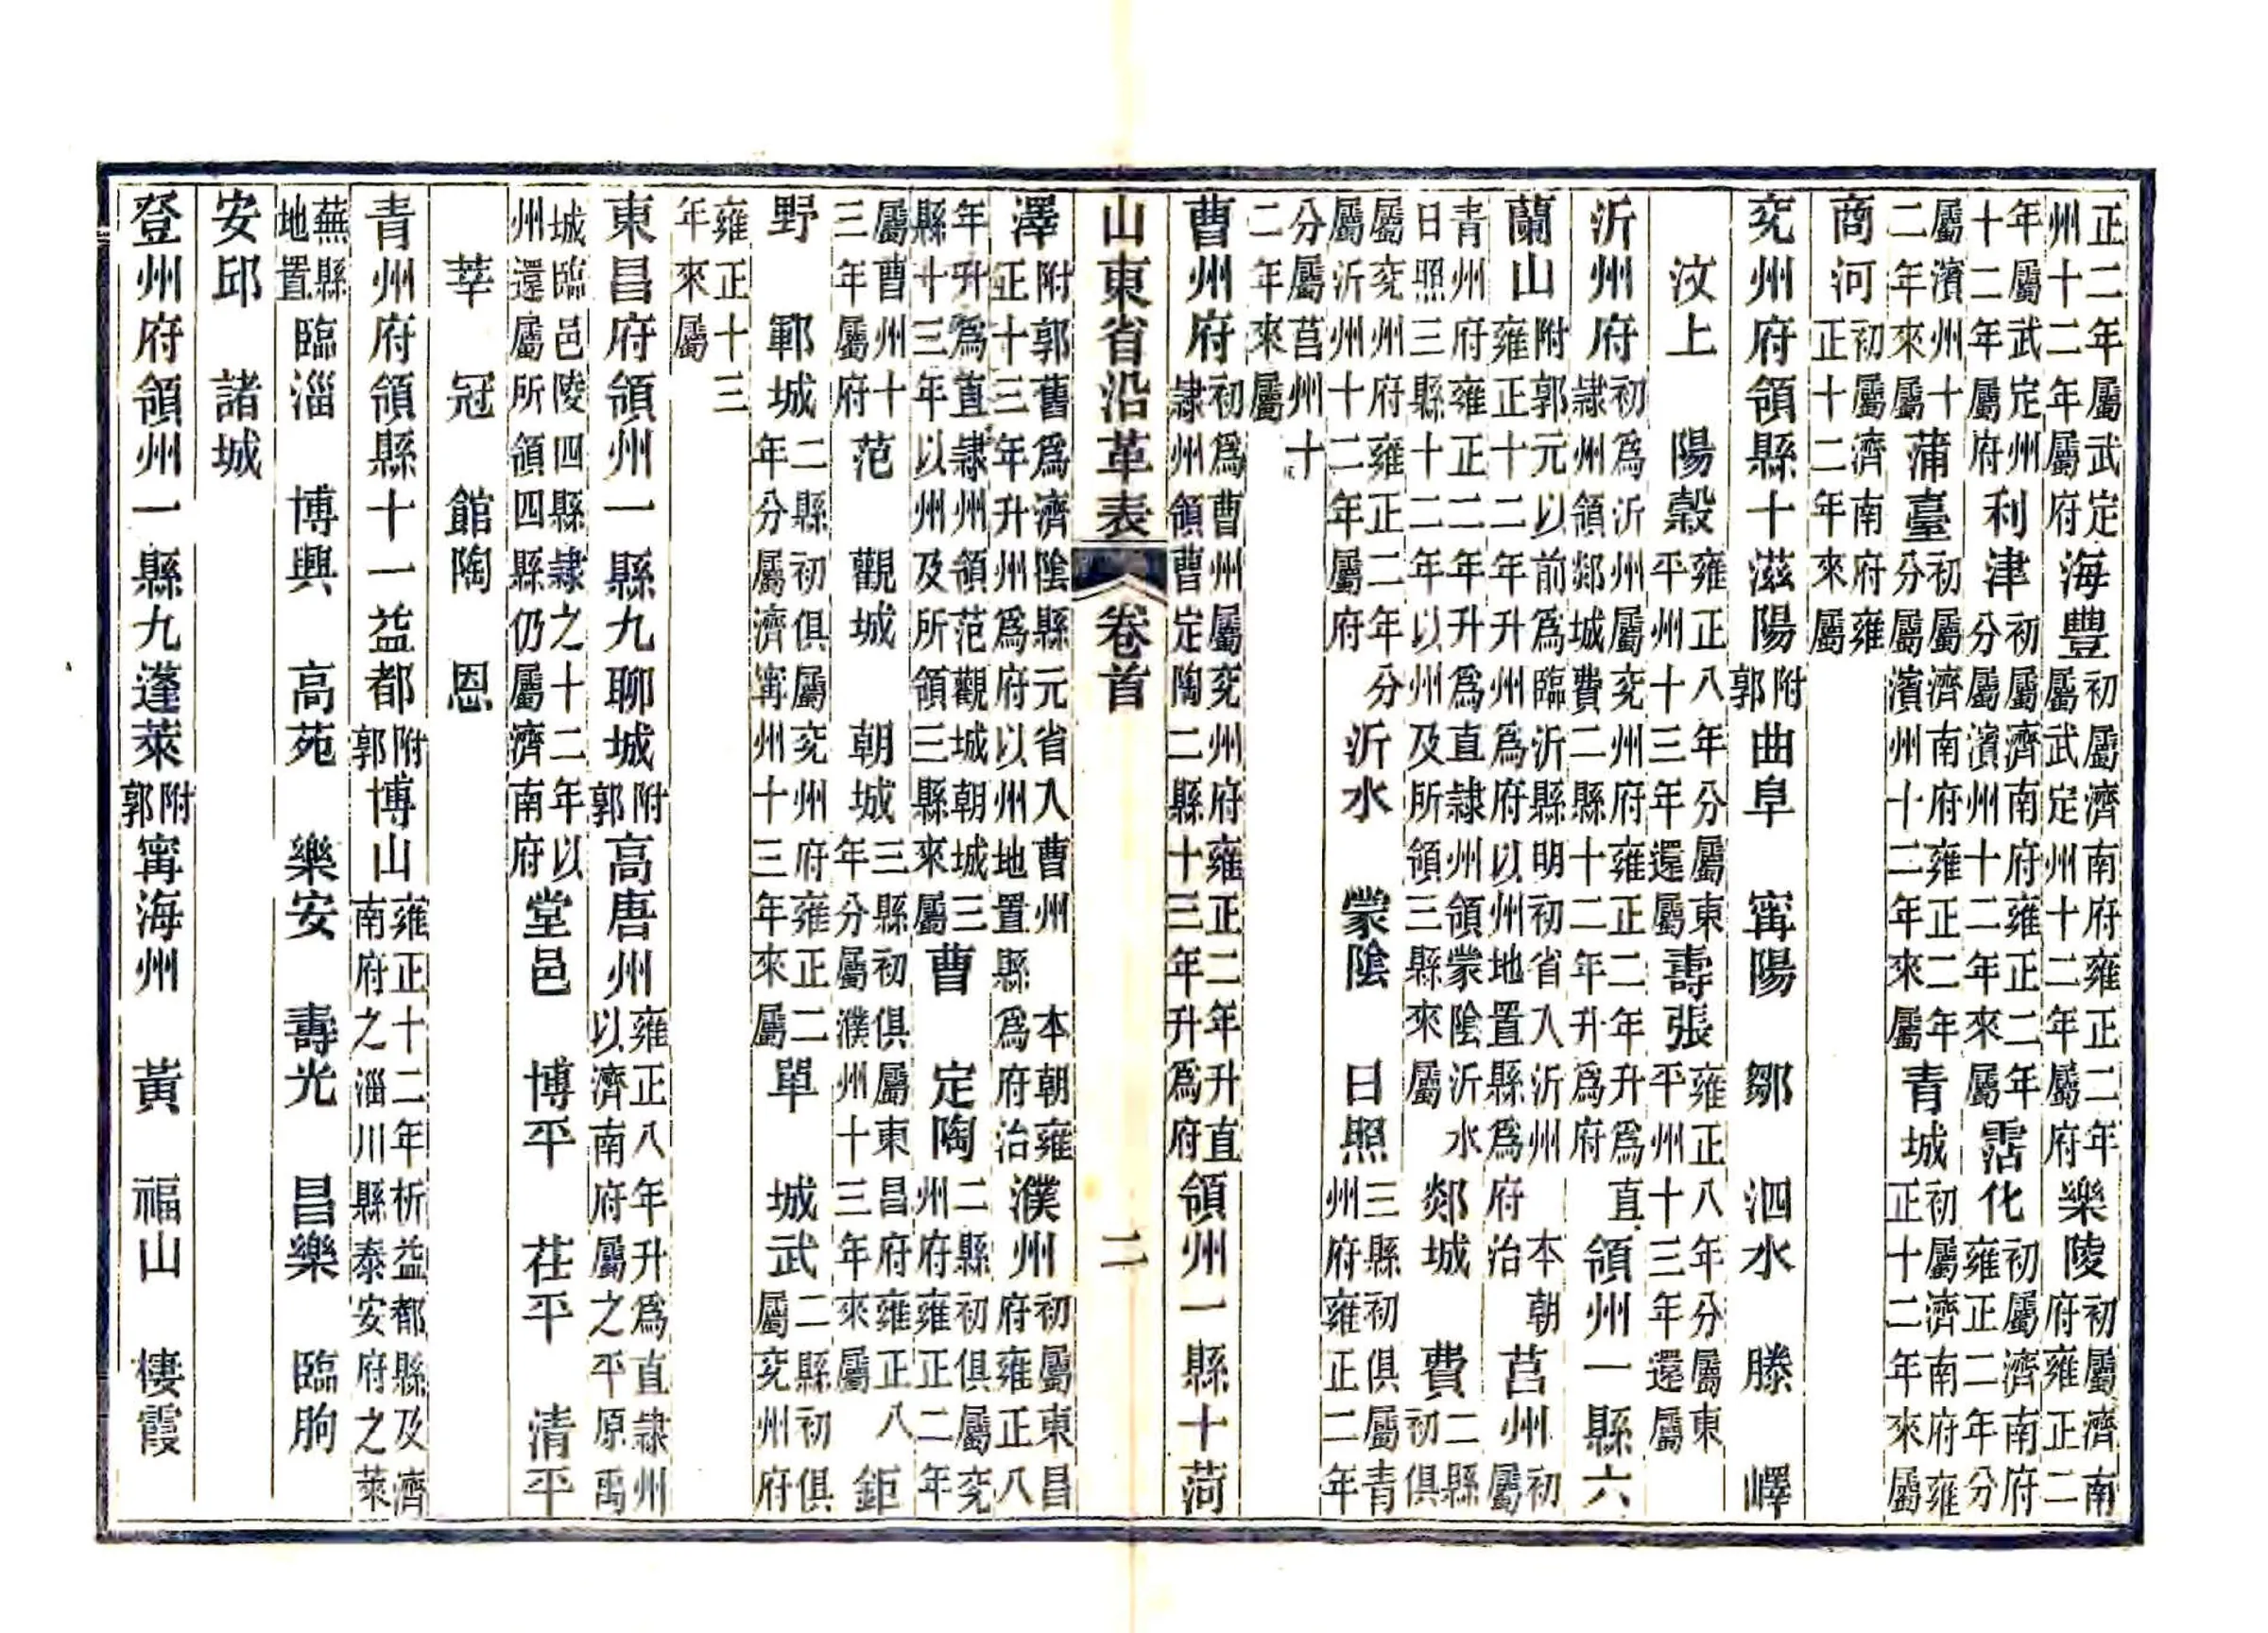 正二年屬武定州十二年屬府海豐初屬濟南府雍正二年屬武定州十二年屬府樂陵初屬濟南府雍正二
年屬武定州十二年屬府利津初屬濟南府雍正二年分屬濱州十二年來屬霑化初屬濟南府雍正二年分
屬濱州十二年來屬蒲臺初屬濟南府雍正二年分屬濱州十二年來屬青城初屬濟南府雍正十二年來屬
商河初屬濟南府雍正十二年來屬
兗州府領縣十滋陽附郭曲阜 甯陽 鄒 泗水 滕 嶧
汶上 陽穀雍正八年分屬東平州十三年還屬壽張雍正八年分屬東平州十三年還屬
沂州府初爲沂州屬兗州府雍正二年升爲直隸州領郯城費二縣十二年升爲府領州一縣六
蘭山附郭元以前爲臨沂縣明初省入沂州 本朝雍正十二年升州爲府以州地置縣爲府治莒州初屬
青州府雍正二年升爲直隸州領蒙陰沂水日照三縣十二年以州及所領三縣來屬郯城 費二縣初俱
屬兗州府雍正二年分屬沂州十二年屬府沂水 蒙陰 日照三縣初俱屬青州府雍正二年
分屬莒州十二年來屬
曹州府初爲曹州屬兗州府雍正二年升直隸州領曹定陶二縣十三年升爲府領州一縣十菏
山東省沿革表 卷首 二
澤附郭舊爲濟陰縣元省入曹州 本朝雍正十三年升州爲府以州地置縣爲府治濮州初屬東昌府雍正八
年升爲直隸州領范觀城朝城三縣十三年以州及所領三縣來屬曹 定陶二縣初俱屬兗州府雍正二年
屬曹州十三年屬府范 觀城 朝城三縣初俱屬東昌府雍正八年分屬濮州十三年來屬鉅
野 鄆城二縣初俱屬兗州府雍正二年分屬濟甯州十三年來屬單 城武二縣初俱屬兗州府
雍正十三年來屬
東昌府領州一縣九聊城附郭高唐州雍正八年升爲直隸州以濟南府屬之平原禹
城臨邑陵四縣隸之十二年以州還屬所領四縣仍屬濟南府堂邑 博平 茌平 清平
莘 冠 館陶 恩
青州府領縣十一益都附郭博山雍正十二年析益都縣及濟南府之淄川縣泰安府之萊
蕪縣地置臨淄 博興 高苑 樂安 壽光 昌樂 臨朐
安邱 諸城
登州府領州一縣九蓬萊附郭甯海州 黃 福山 棲霞